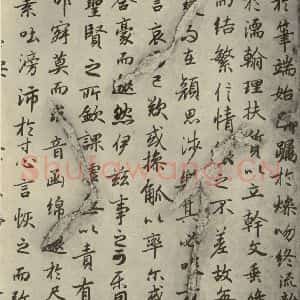 於筆端始躑躅於燥吻終流
於濡翰理扶質以立幹文垂條
而結繁信情不差故每
在顏思涉其必笑
言哀已歎或操觚以率尔或
含豪而邈然伊茲事之可樂
聖賢之所欽課以責有
叩寂寞而求音函綿邈於尺
素吐滂沛於寸言恢之而弥
Shufawang.cn